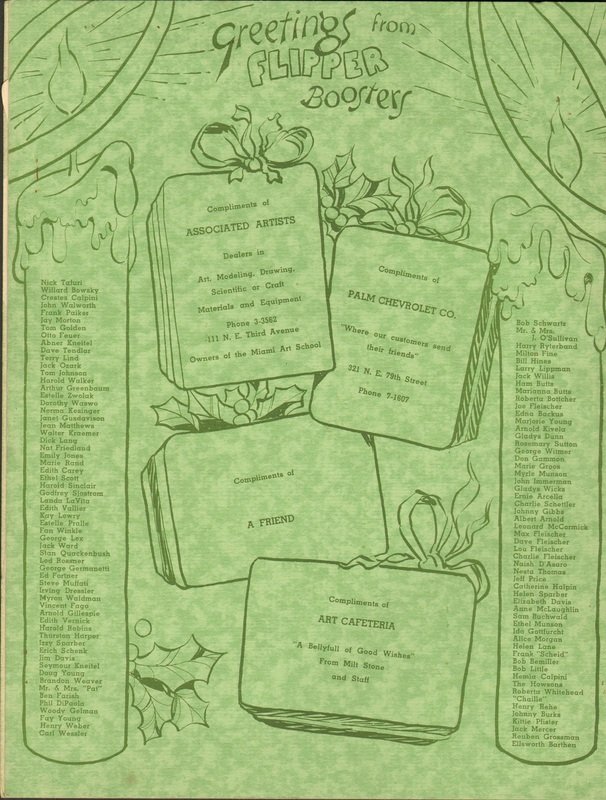 Greetings from
FLIPPER
Boosters
Compliments of
ASSOCIATED ARTISTS
Dealers in
Art, Modeling, Drawing,
Scientific or Craft
Materials and Equipment
Phone 3-3562
111 N. E. Third Avenue
Owners of the Miami Art School
Compliments of
PALM CHEVROLET CO.
"Where our customers send
their friends"
321 N. E. 79th Street
Phone 7-1607
Compliments of
A FRIEND
Compliments of
ART CAFETERIA
"A Bellyfull of Good Wishes"
From Milt Stone
and Staff
Nick Tafuri
Willard Bowsky
Crestes Calpini
John Walworth
Frank Paiker
Jay Morton
Tom Golden
Otto Feuer
Abner Kneitel
Dave Tendlar
Terry Lind
Jack Ozark
Tom Johnson
Harold Walker
Arthur Greenbaum
Estelle Zwolak
Dorothy Waswo
Norma Kosinger
Janet Gusdavison
Jean Matthews
Walter Kraemer
Dick Lang
Nat Friedland
Emily Jones
Marie Rand
Edith Carey
Ethel Scott
Harold Sinclair
Godfrey Sjostrom
Landa LaVita
Edith Vallier
Kay Lowry
Estelle Prolle
Fan Winkle
George Lex
Jack Ward
Stan Quackenbush
Lod Rossner
George Germanetti
Ed Fortner
Steve Muffati
Irving Dressler
Myron Waldman
Vincent Fago
Arnold Gillespie
Edith Vernick
Harold Robins
Thurston Harper
Izzy Sparber
Erich Schenk
Jim Davis
Seymour Kneitel
Doug Young
Brandon Weaver
Mr. & Mrs. "Pat"
Ben Farish
Phil DiPaola
Woody Gelman
Fay Young
Henry Weber
Carl Wessler
Bob Schwartz
Mr. & Mrs.
J. O'Sullivan
Harry Ryterband
Milton Fine
Bill Hines
Larry Lippman
Jack Willis
Ham Butts
Marianna Butts
Roberta Bottcher
Joe Fleischer
Edna Backus
Marjorie Young
Arnold Kivela
Gladys Dunn
Rosemary Sutton
George Witmer
Don Gammon
Marie Groos
Myrle Munson
John Immerman
Gladys Wicks
Ernie Arcella
Charlie Schettler
Johnny Gibbs
Albert Arnold
Leonard McCormick
Max Fleischer
Dave Fleischer
Lou Fleischer
Charlie Fleischer
Naish D'Asaro
Nesta Thomas
Jeff Price
Catherine Halpin
Helen Sparber
Elizabeth Davis
Anne McLaughlin
Sam Buchwald
Ethel Munson
Ida Gottfurcht
Alice Morgan
Helen Lane
Frank "Scheid"
Bob Bemiller
Bob Little
Hemia Calpini
The Howsons
Roberta Whitehead
"Chaille"
Henry Rehe
Johnny Burks
Kittie Pfister
Jack Mercer
Reuben Grossman
Ellsworth Barthen